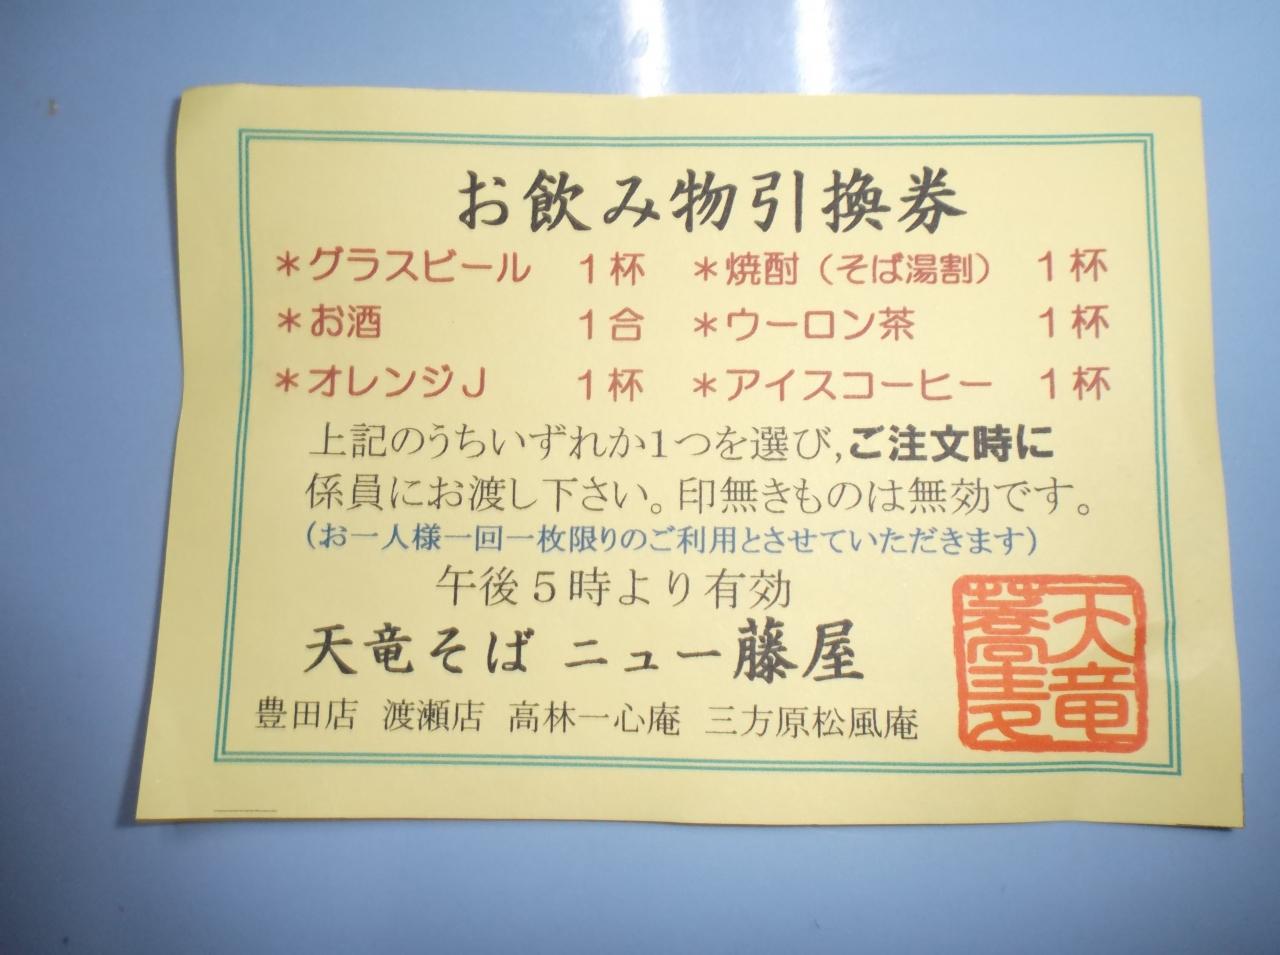 お飲み物引換券
＊グラスビール　１杯　＊焼酎（そば湯割）　１杯
＊お酒　１合　＊ウーロン茶　１杯
＊オレンジＪ　１杯　＊アイスコーヒー　１杯
上記のうちいずれか1つを選び,ご注文時に
係員にお渡し下さい。印無きものは無効です。
（お一人様一回一枚限りのご利用とさせていただきます）
午後５時より有効
天竜そば ニュー藤屋
豊田店　渡瀬店　高林一心庵　三方原松風庵
天竜